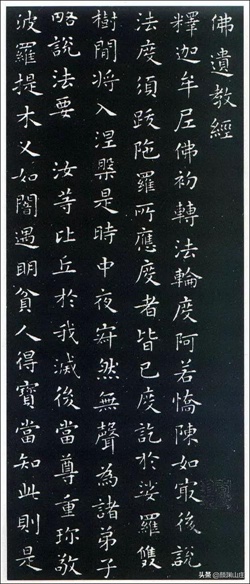 佛遺教經
釋迦牟尼佛初轉法輪度阿若憍陳如寂後說
法度須跋陁羅所應度者皆已度訖於娑羅雙
樹間將入涅槃是時中夜寂然無聲為諸弟子
略說法要 汝等比丘於我滅後當尊重珎敬
波羅提木叉如闇遇明貧人得寶當知此則是
头条@颜渊山庄